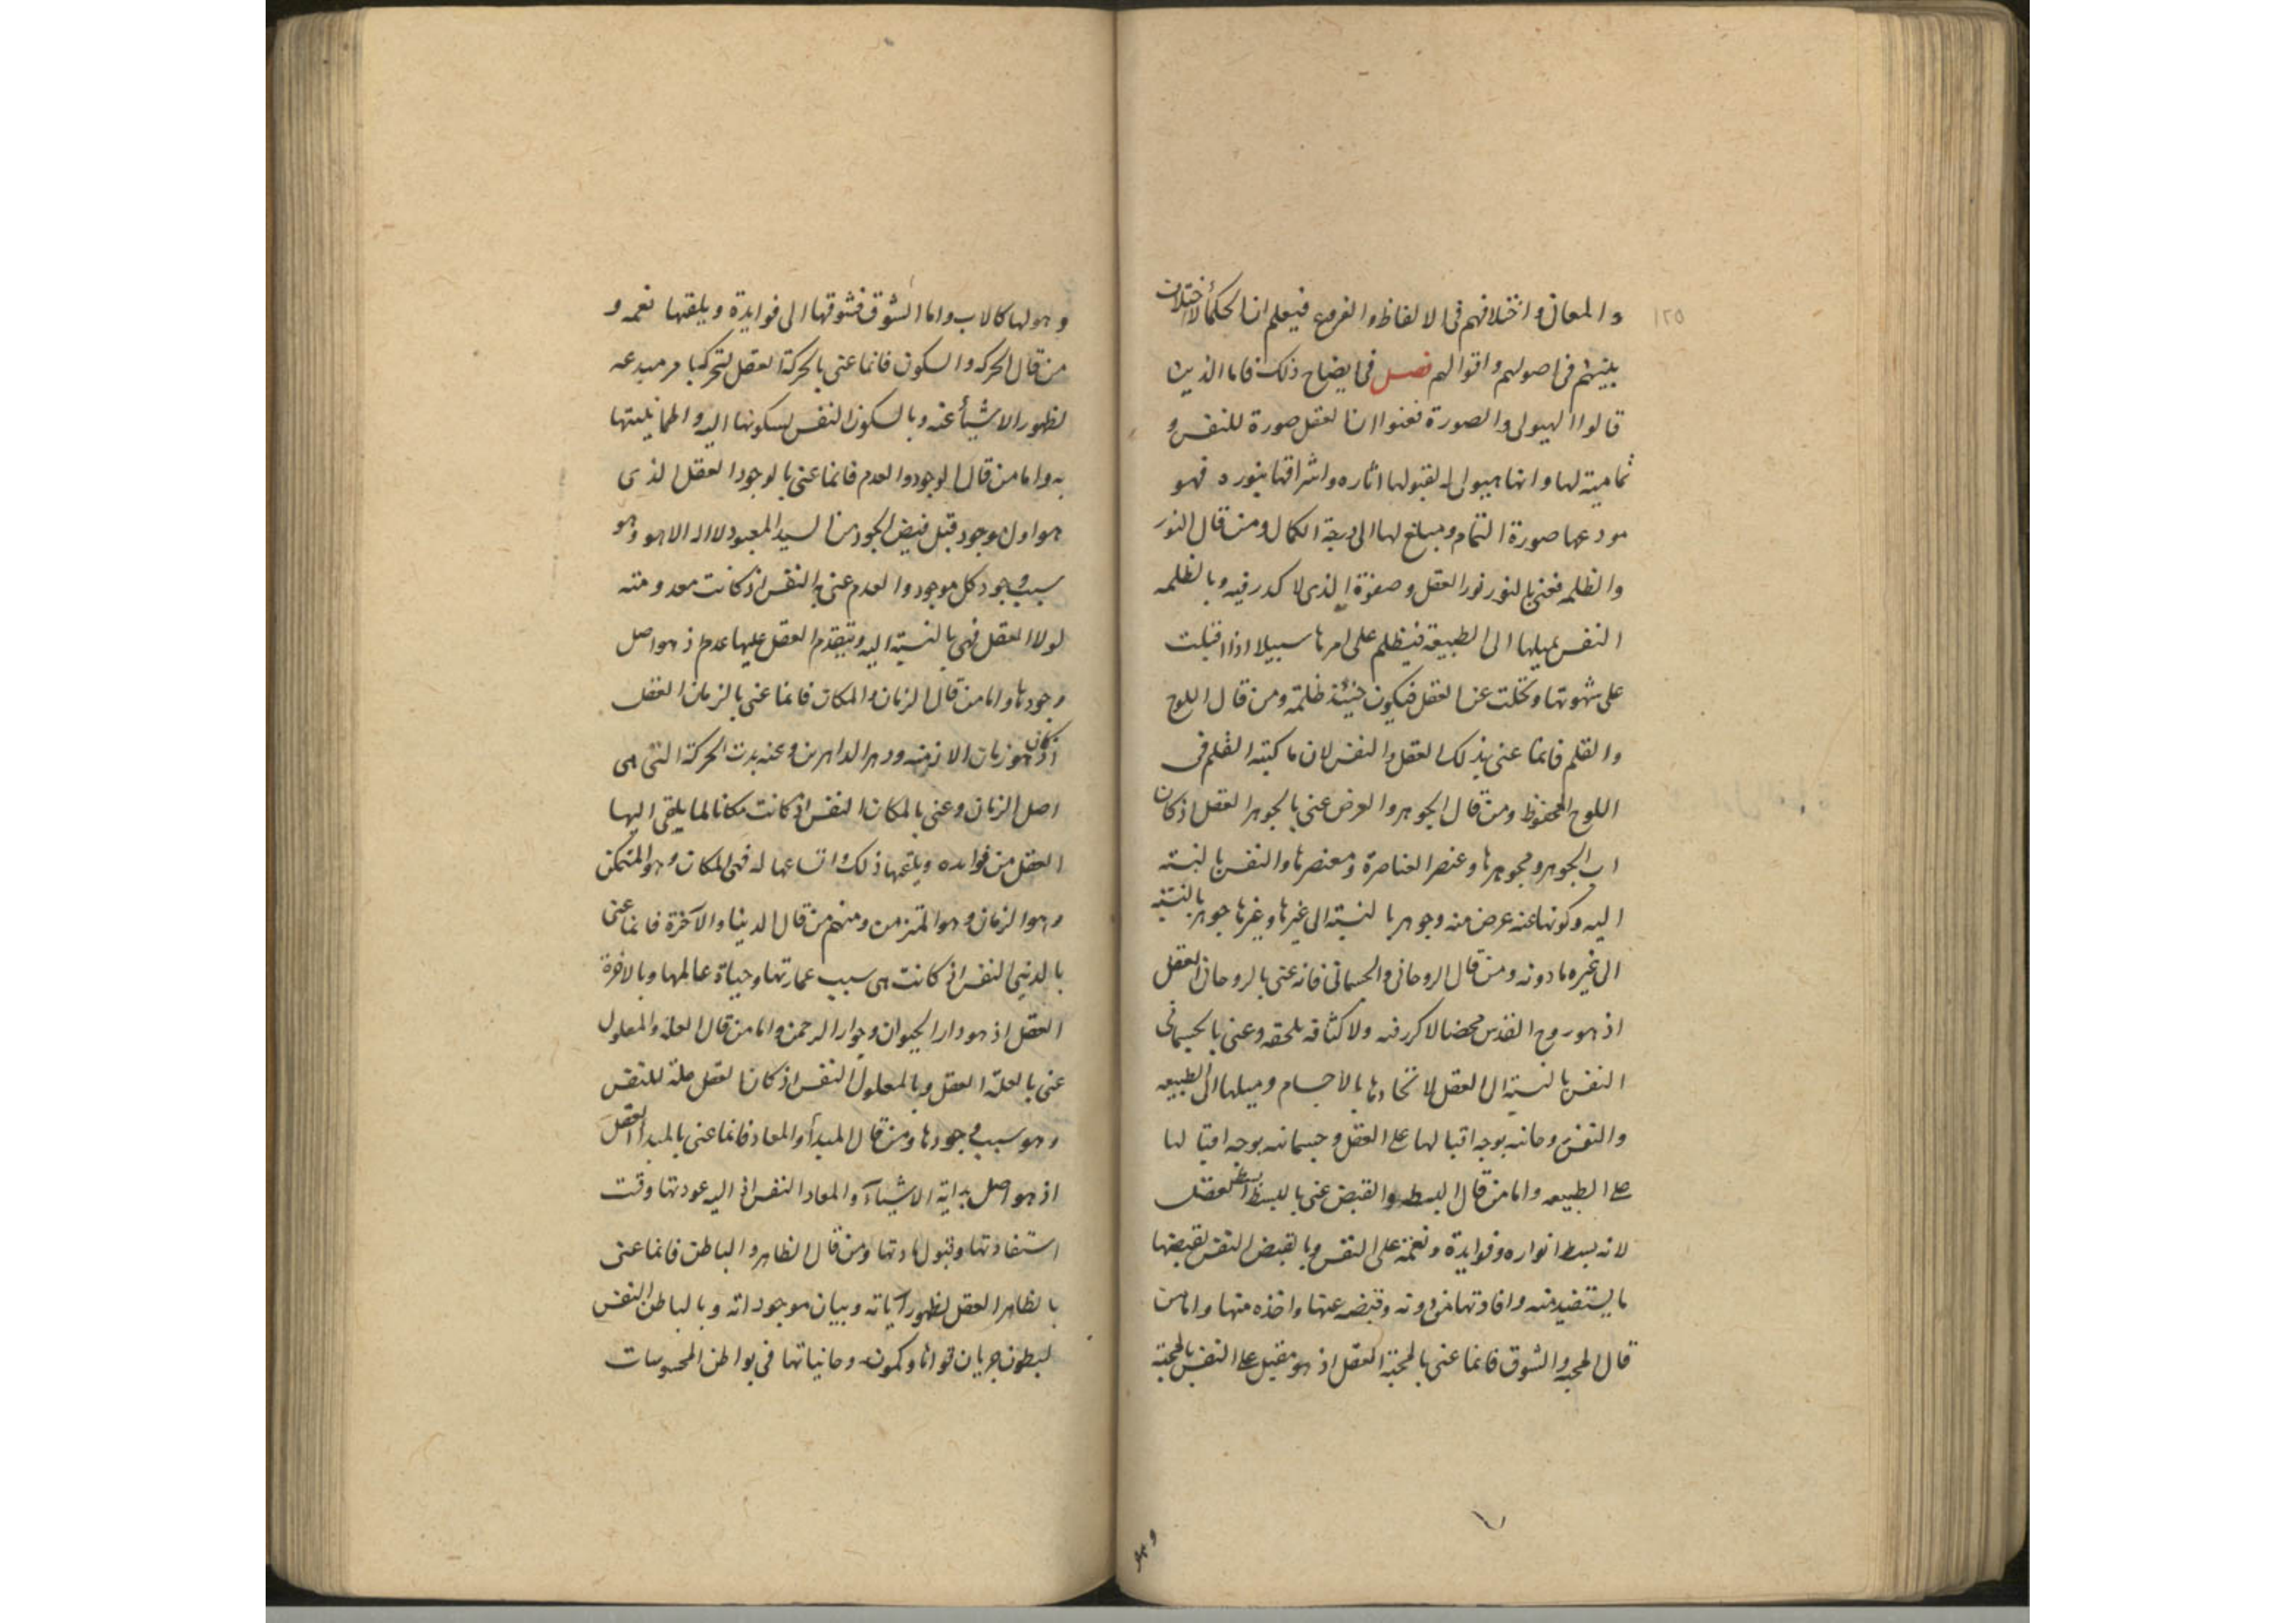 ١٢٥
والمعانى واختلافهم فى الالفاظ والفروع فيعلم ان الحكمأ لا اختلاف
بينهم فى اصولهم واقوالهم فصل فى ايضاح ذلك فاما الذين
قالوا الهيولى والصورة فعنوا ان العقل صورة للنفس و
تمامية لها وانها هيولى له لقبولها اثاره واشراقها بنوره فهو
مودعها صورة التمام ومبلغ لها الى درجة الكمال ومن قال النور
والظلمه فعنى بالنور نور العقل وصفوة الذى لا كدر فيه وبالظلمه
النفس بميلها الى الطبيعة فيظلم على امرها سبيلا اذا اقبلت
على شهوتها وتخلت عن العقل فيكون حينئذ ظلمة ومن قال اللوح
والقلم فانما عنى بذلك العقل والنفس لان ما كتبه القلم فى
اللوح المحفوظ ومن قال الجوهر والعرض عنى بالجوهر العقل اذ كان
اب الجوهر ومجوهرها وعنصر العناصرة ومعنصرها والنفس بالنسبته
اليه وكونها عنه عرض منه وجوهر بالنسبته الى غيرها وغيرها جوهر بالنسبته
الى غيره مادونه ومن قال الروحانى والجسمانى فانه عنى بالروحانى العقل
اذ هو روح القدس محضا لا كدر فيه ولا كثافه تلحقه وعنى بالجسمانى
النفس بالنسبته الى العقل لاتحادها بالاجسام وميلها الى الطبيعه
والنفس روحانيه بوجه اقبالها على العقل وجسمانيه بوجه اقبالها
على الطبيعه واما من قال البسط والقبض عنى بالبسط بسط العقل
لانه بسط انواره وفوايدة ونعمه على النفس وبالقبض النفس لقبضها
ما يستفيد منه وافادتها من دونه وقبضه عنها واخذه منها واما من
قال المحبه والشوق فانما عنى بالمحبة العقل اذ هو مقبل على النفس بالمحبته
وهو
وهو لها كالاب واما الشوق فشوقها الى فوايدة ويلقها نعمه و
من قال الحركه والسكون فانما عنى بالحركة العقل لتحركها من مبدعه
لظهور الاشيأ عنه وبالسكون النفس لسكونها اليه واطمانينتها
به واما من قال الوجود والعدم فانما عنى بالوجود العقل الذى
هو اول موجود قبل فيض الجود من السيد المعبود لا اله الا هو وهو
سبب وجود كل موجود والعدم عنى به النفس اذ كانت معدومته
لولا العقل فهى بالنسبته اليه وبتقدم العقل عليها عدم اذ هو اصل
وجودها واما من قال الزمان والمكان فانما عنى بالزمان العقل
اذ كان هو زمان الازمنه ودهر الداهرين وعنه بدت الحركة التى هى
اصل الزمان وعنى بالمكان النفس اذ كانت مكانا لما يلقى اليها
العقل من فوايده ويلقها ذلك واتساعها له فهى المكان وهو المتمكن
وهو الزمان وهو المتزمن ومنهم من قال الدنيا والآخرة فانما عنى
بالدنيى النفس اذ كانت هى سبب عمارتها وحياة عالمها وبالاخرة
العقل اذ هو دار الحيوان وجوار الرحمن واما من قال العلة والمعلول
عنى بالعلة العقل وبالمعلول النفس اذ كان العقل علة للنفس
وهو سبب وجودها ومن قال المبدأ والمعاد فانما عنى بالمبدأ العقل
اذ هو اصل بداية الاشيآء والمعاد النفس اذ اليه عودتها وقت
استفادتها وقبول مادتها ومن قال الظاهر والباطن فانما عنى
بالظاهر العقل لظهور آياته وبيان موجوداته وبالباطن النفس
لبطون جريان قواها وكمون روحانياتها فى بواطن المحسوسات